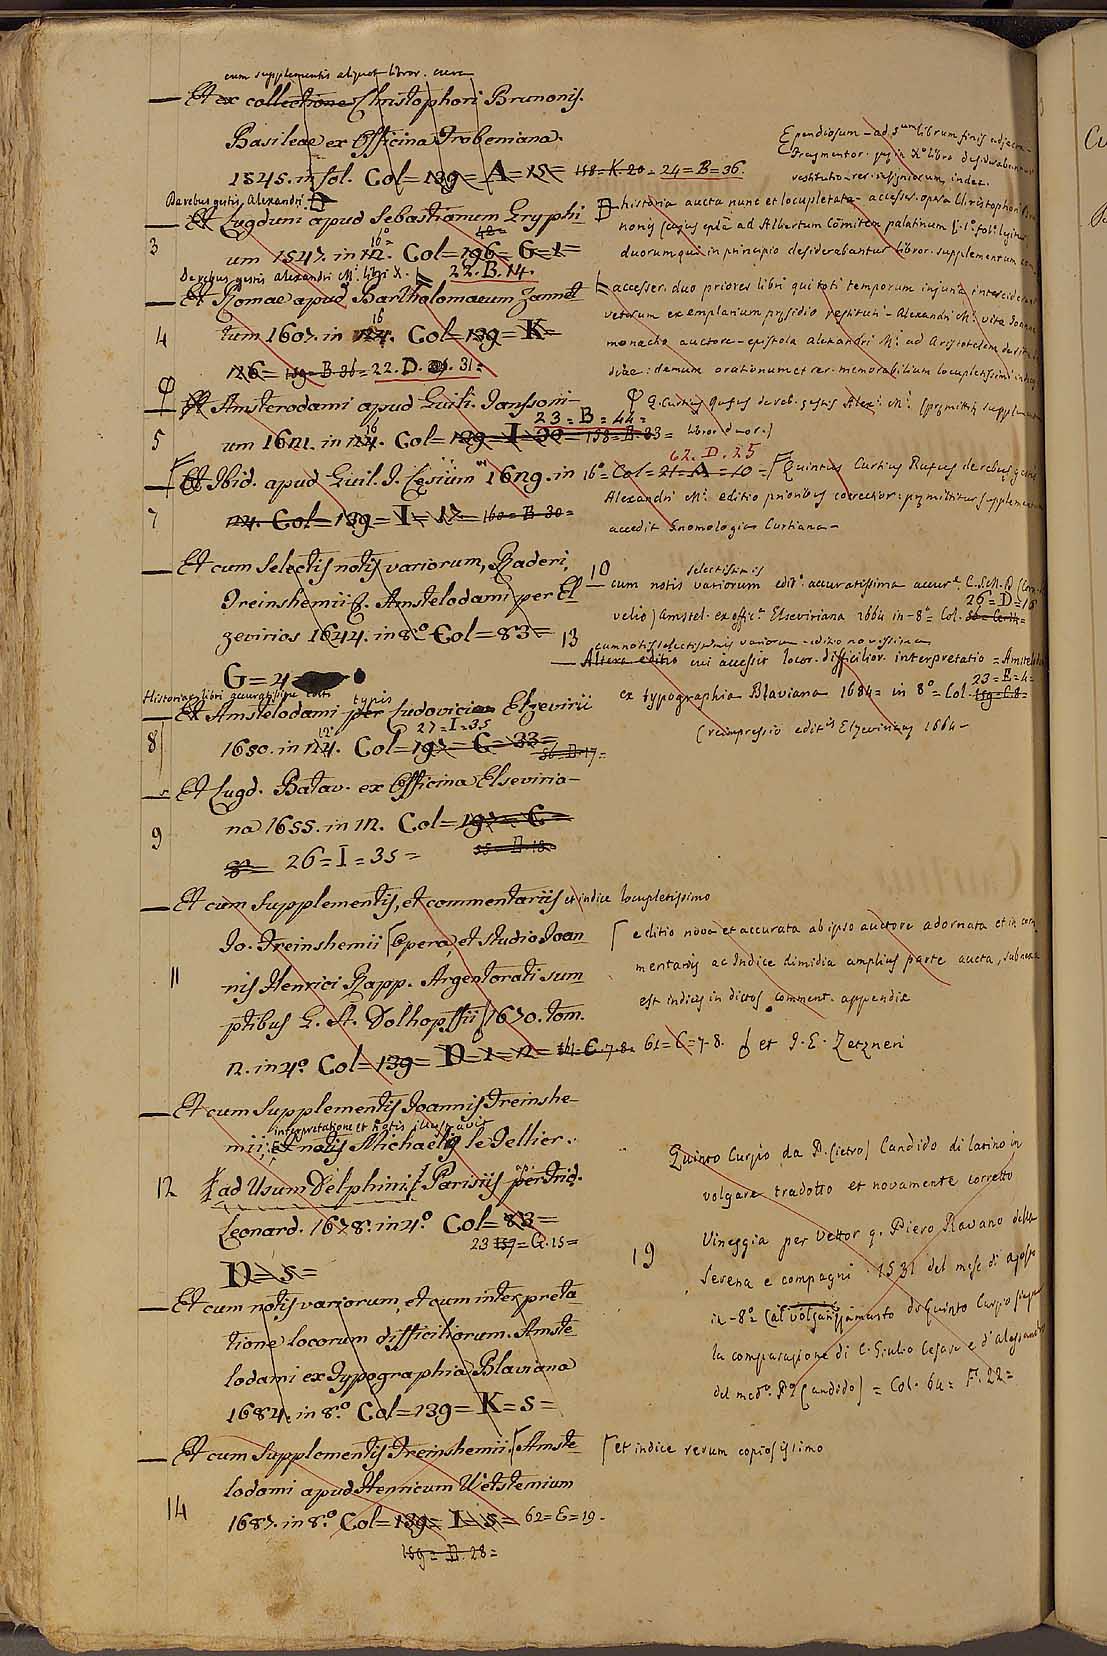 cum supplementis aliquot libror. cura
— Et ex collectione Christophori Brunonis.
Basileae ex Officina Frobeniana.
1545. in fol. Col=139= A=15= 158=K-20= 24=B=36.
De rebus gestis Alexandri.
— Et Lugduni apud Sebastianum Gryphi-
3 um 1547. in 12. 16° Col=196=G=1=
22.B.14.
De rebus gestis Alexandri M. libri X.
— Et Romae apud Bartholomaeum Zannet
4 tum 1607. in 16 Col=139=K=
126= 159=B-36= 22.D. 31=
— Et Amsterodami apud Guili. Janssoni-
23=B=44=
5 um 1621. in 16 Col=139=I=30=158=B-33= libror. duor.)
62.D.25
— Et Ibid. apud Guil. I. Caesium 1629. in 16°= Col=21=A=10=
7 24. Col=139=I=17= 160=B-30=
— Et cum Selectis notis variorum, Raderi,
Freinshemii &. Amstelodami per El
zevirios 1644. in 8° Col=83=
G=4
Historiar. libri accuratissime editi
— Et Amstelodami per typis Ludovici Elzevirii
27=I=35
8 1650. in 12° Col=197=C=33=
56=D-17=
— Et Lugd. Batav. ex Officina Elseviria-
9 na 1655. in 12. Col=197=C=
26=I=35=
— Et cum Supplementis, et commentariis et indice locupletissimo
Io. Freinshemii [Opera, et Studio Joan
11 nis Henrici Rapp. Argentorati sum
ptibus G. A. Dolhopffii 1670. tom.
2. in 4° Col=139=D=1=2= 161=C-7-8= 61=C=7-8. et J. E. Zetzneri
— Et cum Supplementis Joannis Freinshe-
interpretatione et notis illustravit
mii: Et notis Michaelis le Tellier.
12 ad Usum Delphini Parisiis ap. per Frid.
Leonard. 1678. in 4° Col=83=
23 159=G.15=
D=5=
— Et cum notis variorum, et cum interpreta-
tione locorum difficiliorum. Amste-
lodami ex Typographia Blaviana
1684. in 8° Col=139=K=5=
— Et cum Supplementis Freinshemii [Amste-
lodami apud Henricum Wetstenium
14 1687. in 8° Col=139=I=5= 62=E=19.
159=D.28=
Ependiosum - ad 5um librum finis adjecta-
Fragmentor. quae in X° libro desiderabantur
restitutio - rer. insigniorum index.
historia aucta nunc et locupletata - accesser. opera Christophori Bru
nonis (cujus epla ad Albertum Comitem palatinum 1° fol° legitur
duorum qui in principio desiderabantur libror. supplementum
accesser. duo priores libri qui toti temporum injuria interciderant
veterum exemplarium praesidio restituti - Alexandri M. vita Joanne
monacho auctore - epistola Alexandri M. ad Aristotelem de situ
Indiae: demum orationum et rer. memorabilium locupletissimi indices
Q. Curtius Rufus de reb. gestis Alex. M. (praemittitur supplem
[Quintus Curtius Rufus de rebus gestis
Alexandri M. editio prioribus correctior: praemittitur supplementum
accedit Gnomologia Curtiana -
10 selectissimis
— cum notis variorum edit° accuratissima accur.e C.Sch.D (Corn.
26=D=18
velio) Amstel. ex offic.a Elseviriana 1664 in-8°= Col.
13 cum notis selectissimis variorum - editio novissima
— Altera editio cui accessit locor. difficilior. interpretatio = Amstelod
23=E=4=
ex typographia Blaviana 1684= in 8°= Col. 159=C.8=
(reimpressio editis Elzevirianae 1664 -
[editio nova et accurata ab ipso auctore adornata et in com
mentariis ac Indice dimidia amplius parte aucta, subnexa
est indicis in dictos comment. appendix
Quinto Curzio da P.(ietro) Candido di latino in
volgare tradotto et novamente corretto
Vineggia per Vettor q. Piero Ravano della
19 Serena e compagni. 1531 del mese di agosto
in-8°= (al volgarizzamento di Quinto Curzio segue
la comparazione di C. Giulio Cesare e d'Alessandro
del med.° P° Candido) = Col. 64= F.22=
[et indice rerum copiosissimo